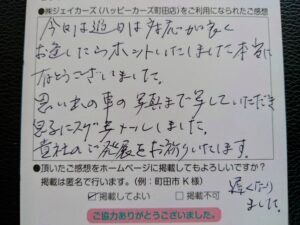 ●㈱ジェイカーズ(ハッピーカーズ町田店)をご利用になられたご感想
今日は迅日対応が良く
お逢したらホットいたしました本当に
ありがとうございました。
思い出の車の写真まで写していただき
息子にスグメールしました。
貴社のご発展をお祈りいたします。
●頂いたご感想をホームページに掲載してもよろしいですか?
掲載は匿名で行います。(例:町田市K様)
☑掲載してよい □掲載不可
遅くなり
ました。
ご協力ありがとうございました。